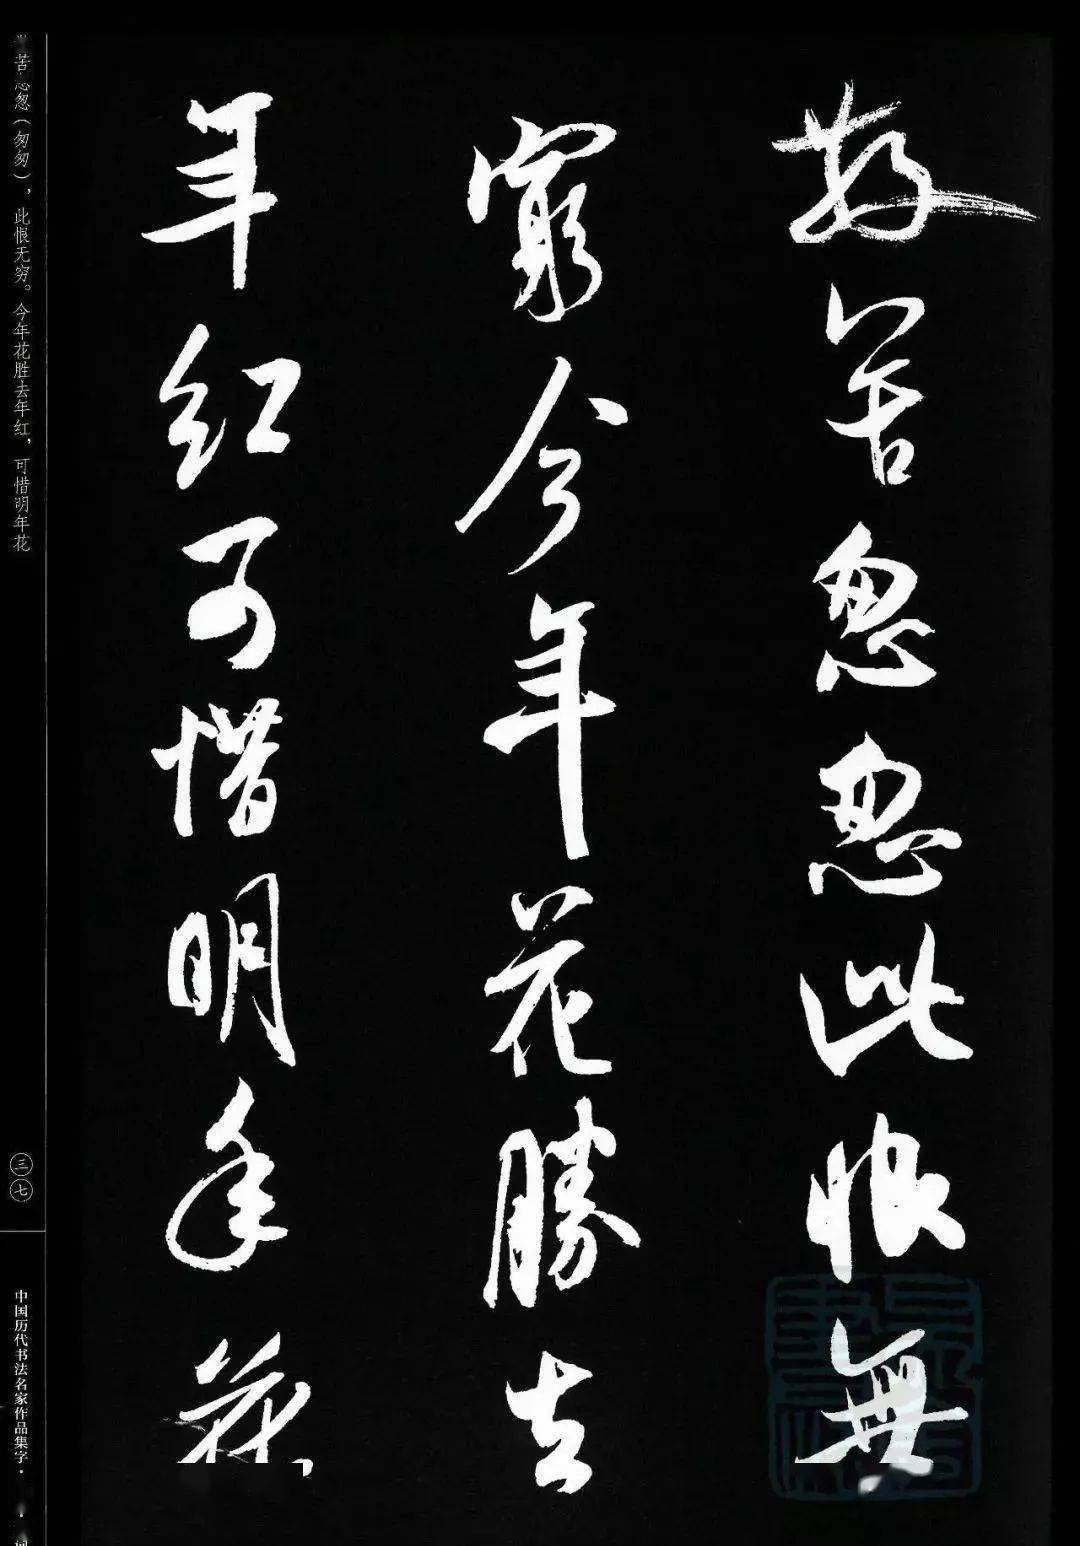 散苦怱怱此恨無
窮今年花勝去
年红可惜明年花
苦怱怱（匆匆），此恨无穷。今年花胜去年红，可惜明年花
三七
中国历代书法名家作品集字·